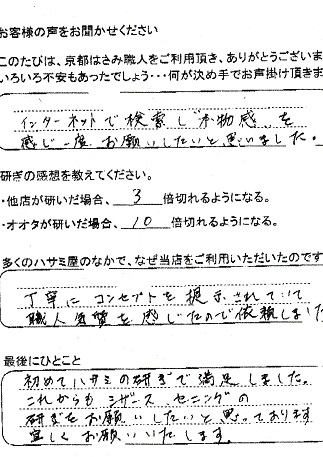 お客様の声をお聞かせください
このたびは、京都はさみ職人をご利用頂き、ありがとうございま
いろいろ不安もあったでしょう・・・何が決め手でお声掛け頂きま
インターネットで検索し「本物感」を
感じ一度お願いしたいと思いました。
研ぎの感想を教えてください。
・他店が研いだ場合、 3 倍切れるようになる。
・オオタが研いだ場合、 10 倍切れるようになる。
多くのハサミ屋のなかで、なぜ当店をご利用いただいたのです
丁寧にコンセプトを提示されていて
職人気質を感じたので依頼しまし
最後にひとこと
初めてハサミの研ぎで満足しました。
これからも シザース セニングの
研ぎをお願いしたいと思っております
宜しくお願いいたします。